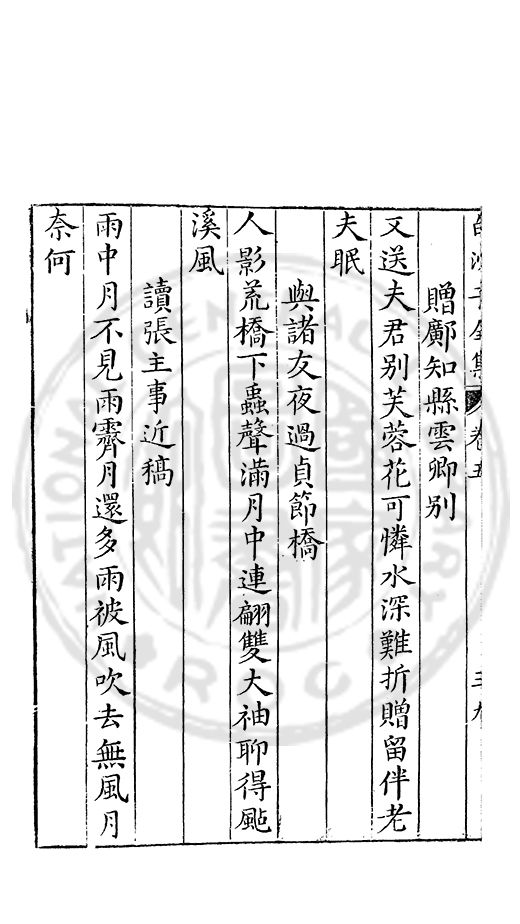 全集 卷五
贈鄺知縣雲卿别
又送夫君别芙蓉花可憐水深難折贈留伴老
夫眠
與諸友夜過貞節橋
人影荒橋下蟲聲滿月中連翩雙大袖聊得颭
溪風
讀張主事近稿
雨中月不見雨霽月還多雨被風吹去無風月
奈何